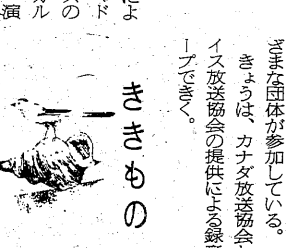 ざまな団体が参加している。
きょうは、カナダ放送協会
イス放送協会の提供による録
ープできく。
ききもの
によ
ド
スの
カル
演